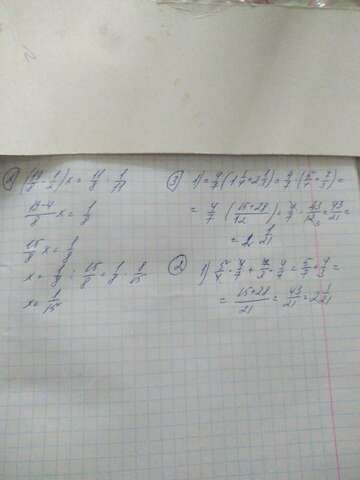 (19/8 - 1/2)x = 11/8 · 1/11
19-4/8 x = 1/8
15/8 x = 1/8
x = 1/8 : 15/8 = 1/8 · 8/15
x = 1/15
3) 1) = 4/7 · (1 1/4 + 2 1/3) = 4/7 · (5/4 + 7/3) =
= 4/7 · (15+28/12) = 4/7 · 43/12 3 = 43/21 =
= 2 1/21
2) 1) 5/4 · 4/7 + 7/3 · 4/7 = 5/7 + 4/3 =
= 15+28/21 = 43/21 = 2 1/21